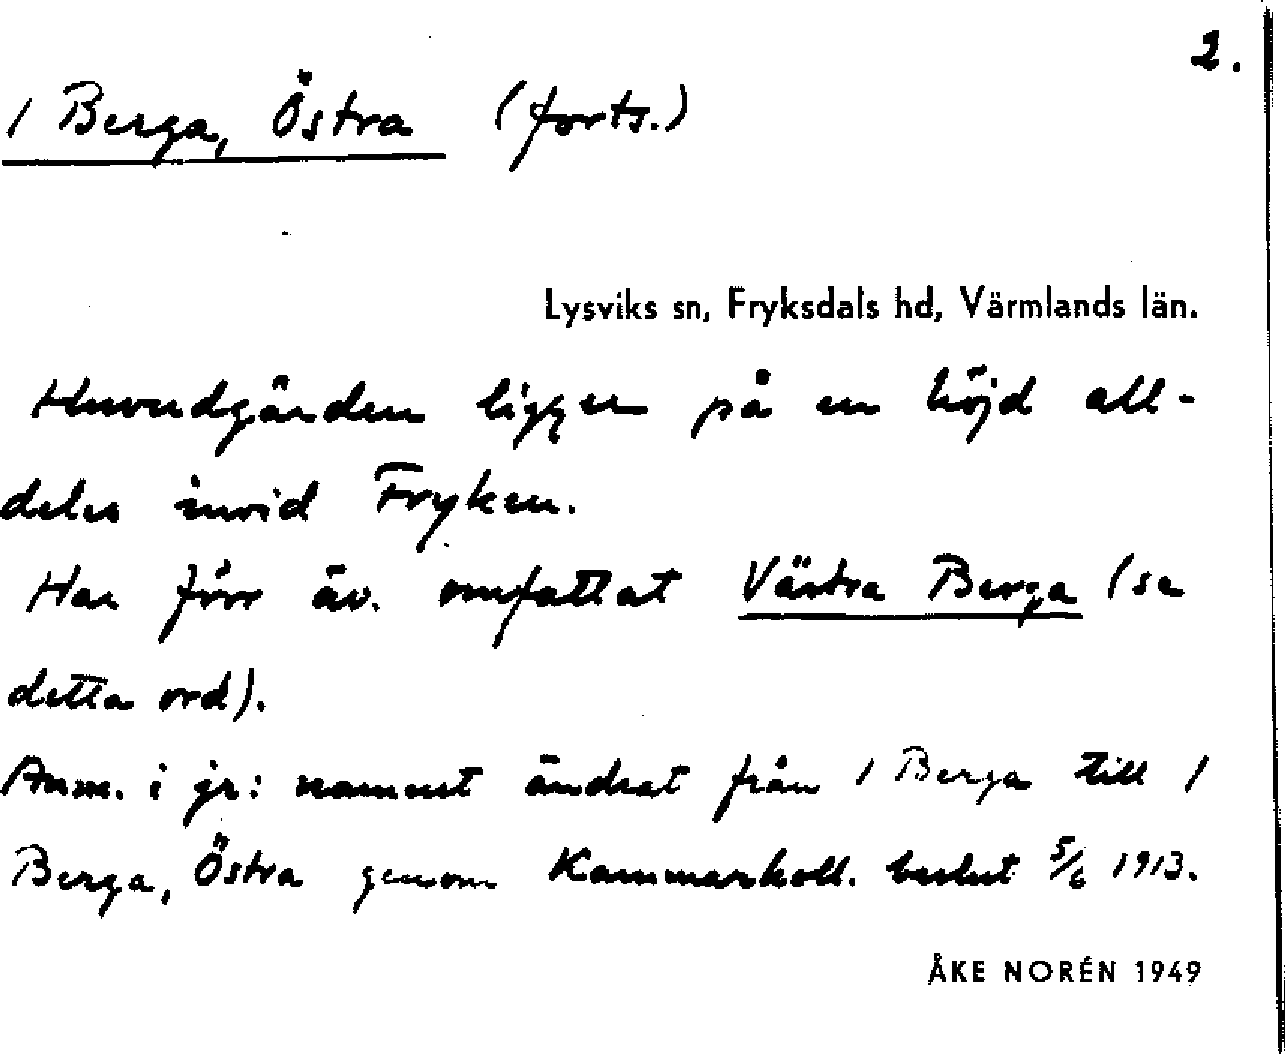 2.
1 Berga, Östra (forts.)
Lysviks sn, Fryksdals hd, Värmlands län.
Huvudgården ligger på en höjd all-
deles invid Fryken.
Har förr äv. omfattat Västra Berga (se
detta ord).
Anm. i jr: namnet ändrat från 1 Berga till 1
Berga, Östra genom Kammarkoll. beslut 5/6 1913.
ÅKE NORÉN 1949